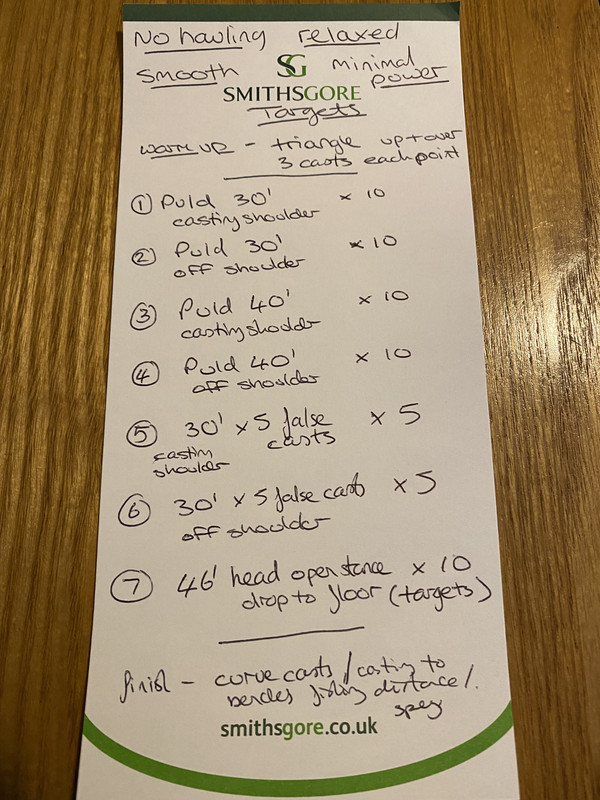 No hauling relaxed
smooth SG minimal power
SMITHSGORE
Targets
warm up - triangle up + over
3 casts each point
① PULD 30' x 10
casting shoulder
② PULD 30' x 10
off shoulder
③ PULD 40' x 10
casting shoulder
④ PULD 40' x 10
off shoulder
⑤ 30' x 5 false casts x 5
casting shoulder
⑥ 30' x 5 false casts x 5
off shoulder
⑦ 46' head open stance x 10
drop to floor (targets)
finish - curve casts / casting to
fishing distance /
spey
smithsgore.co.uk